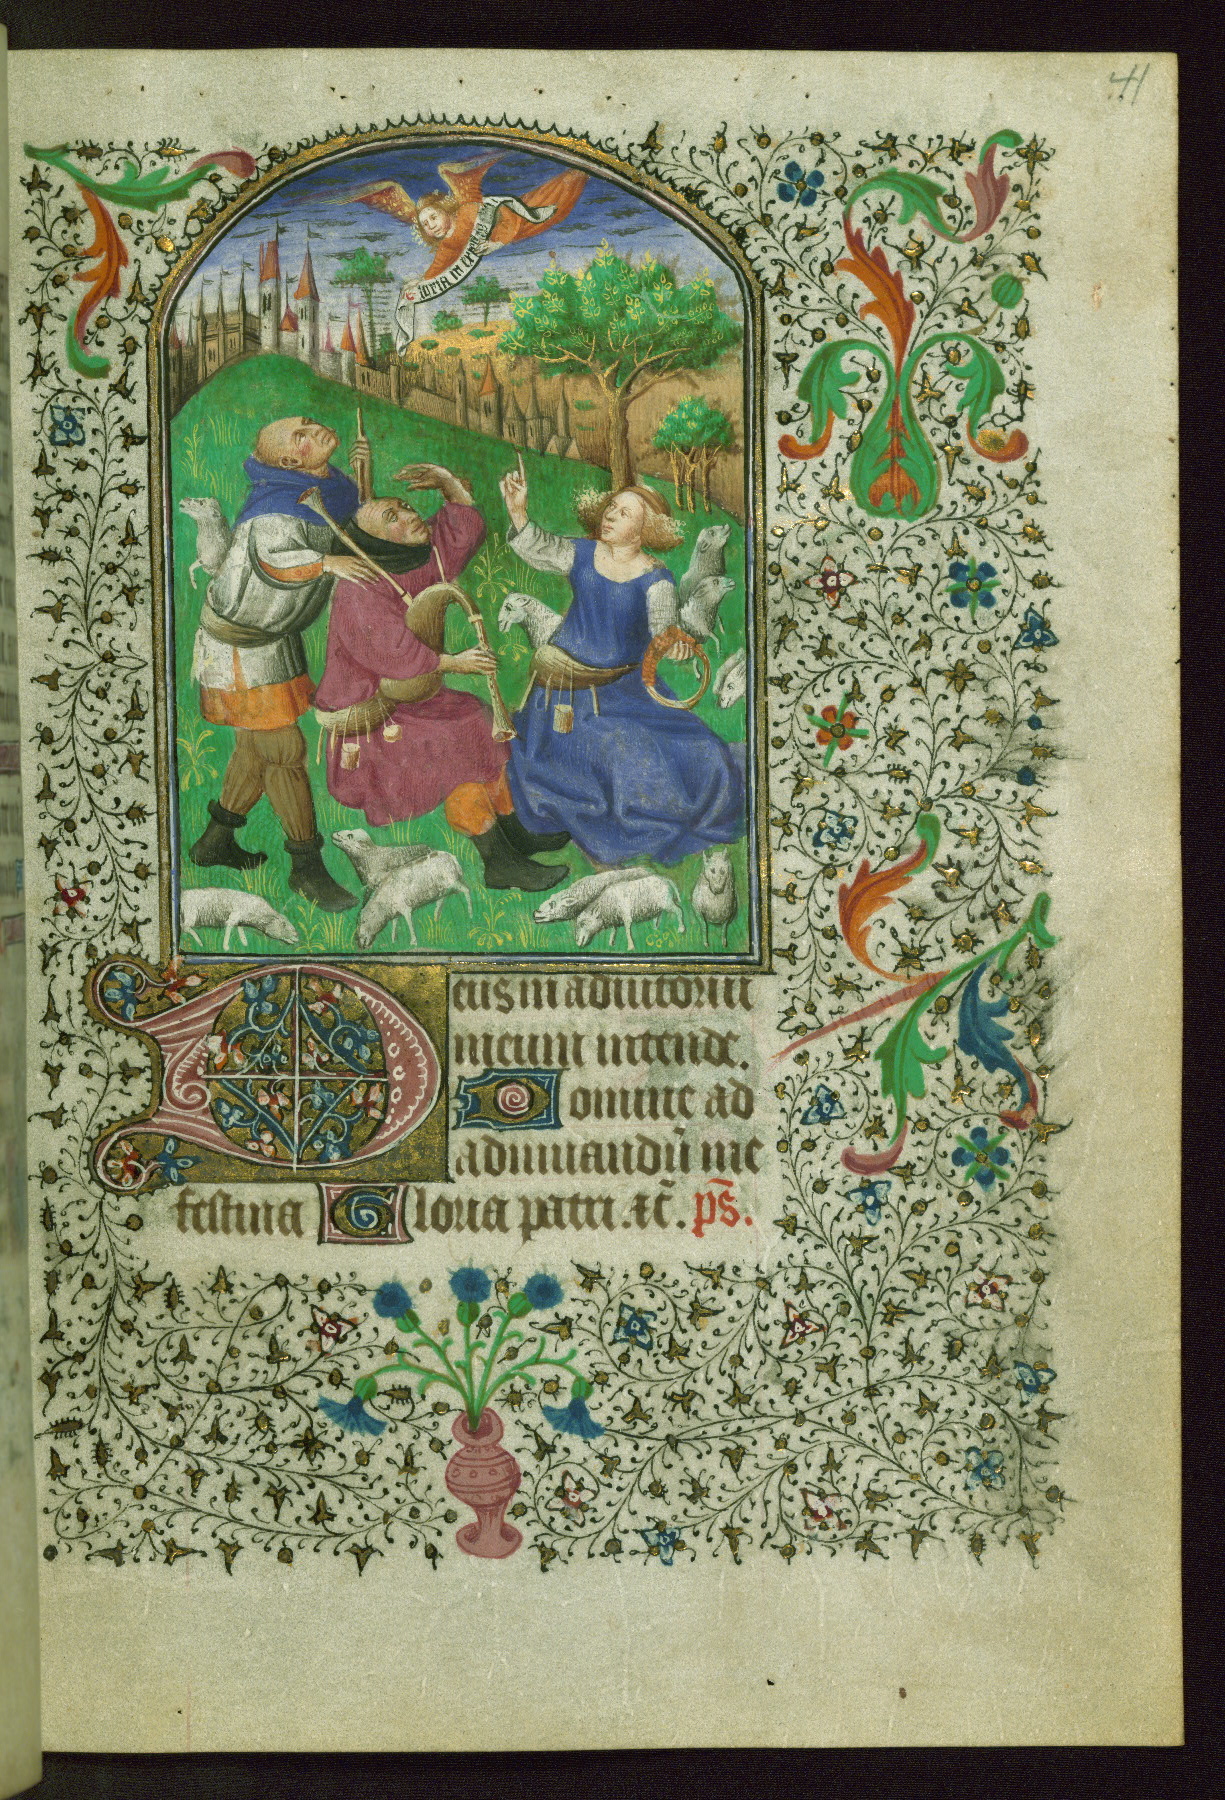 41
Gloria in excelsis
Deus in adiutoriu
meum intende.
Domine ad
adiuuandū me
festina Gloria patri. ⁊c̄. p̄s.